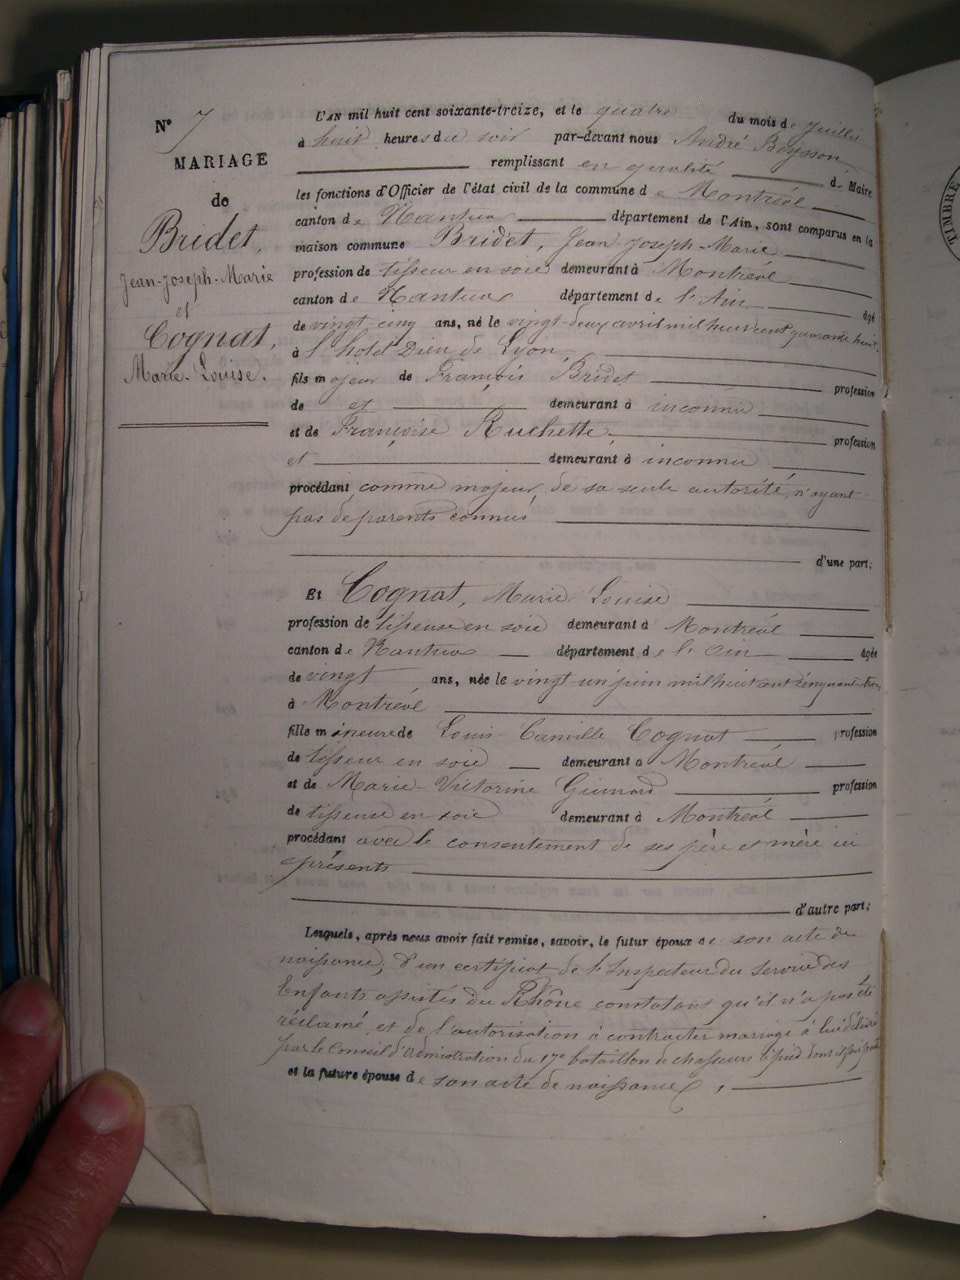 N° 7
MARIAGE
de
Bridet,
Jean-Joseph-Marie
et
Cognat,
Marie-Louise.
L'AN mil huit cent soixante-treize, et le quatre du mois de juillet
à huit heures du soir par-devant nous André Boysson
remplissant en qualité de Maire
les fonctions d'Officier de l'état civil de la commune de Montréal
canton de Nantua département de l'Ain, sont comparus en la
maison commune Bridet, Jean-Joseph-Marie
profession de tisseur en soie demeurant à Montréal
canton de Nantua département de l'Ain âgé
de vingt cinq ans, né le vingt-deux avril mil huit cent quarante huit
à l'hotel Dieu de Lyon,
fils majeur de François Bridet profession
de et demeurant à inconnu
et de Françoise Ruchette profession
et demeurant à inconnu
procédant comme majeur, de sa seule autorité, n'ayant
pas de parents connus
d'une part;
Et Cognat, Marie Louise
profession de tisseuse en soie demeurant à Montréal
canton de Nantua département de l'Ain âgée
de vingt ans, née le vingt-un juin mil huit cent cinquante-trois
à Montréal
fille mineure de Louis Camille Cognat profession
de tisseur en soie demeurant à Montréal
et de Marie-Victorine profession
de tisseuse en soie demeurant à Montréal
procédant avec le consentement de ses père et mère ici
présents
d'autre part;
Lesquels, après nous avoir fait remise, savoir, le futur époux de son acte de
naissance, d'un certificat de l'Inspecteur du Service des
Enfants assistés du Rhône constatant qu'il n'a pas été
réclamé, et de l'autorisation à contracter mariage à lui délivrée
par le Conseil d'administration du 17e bataillon de chasseurs à pied dont il fait partie
et la future épouse de son acte de naissance,
TIMBRE